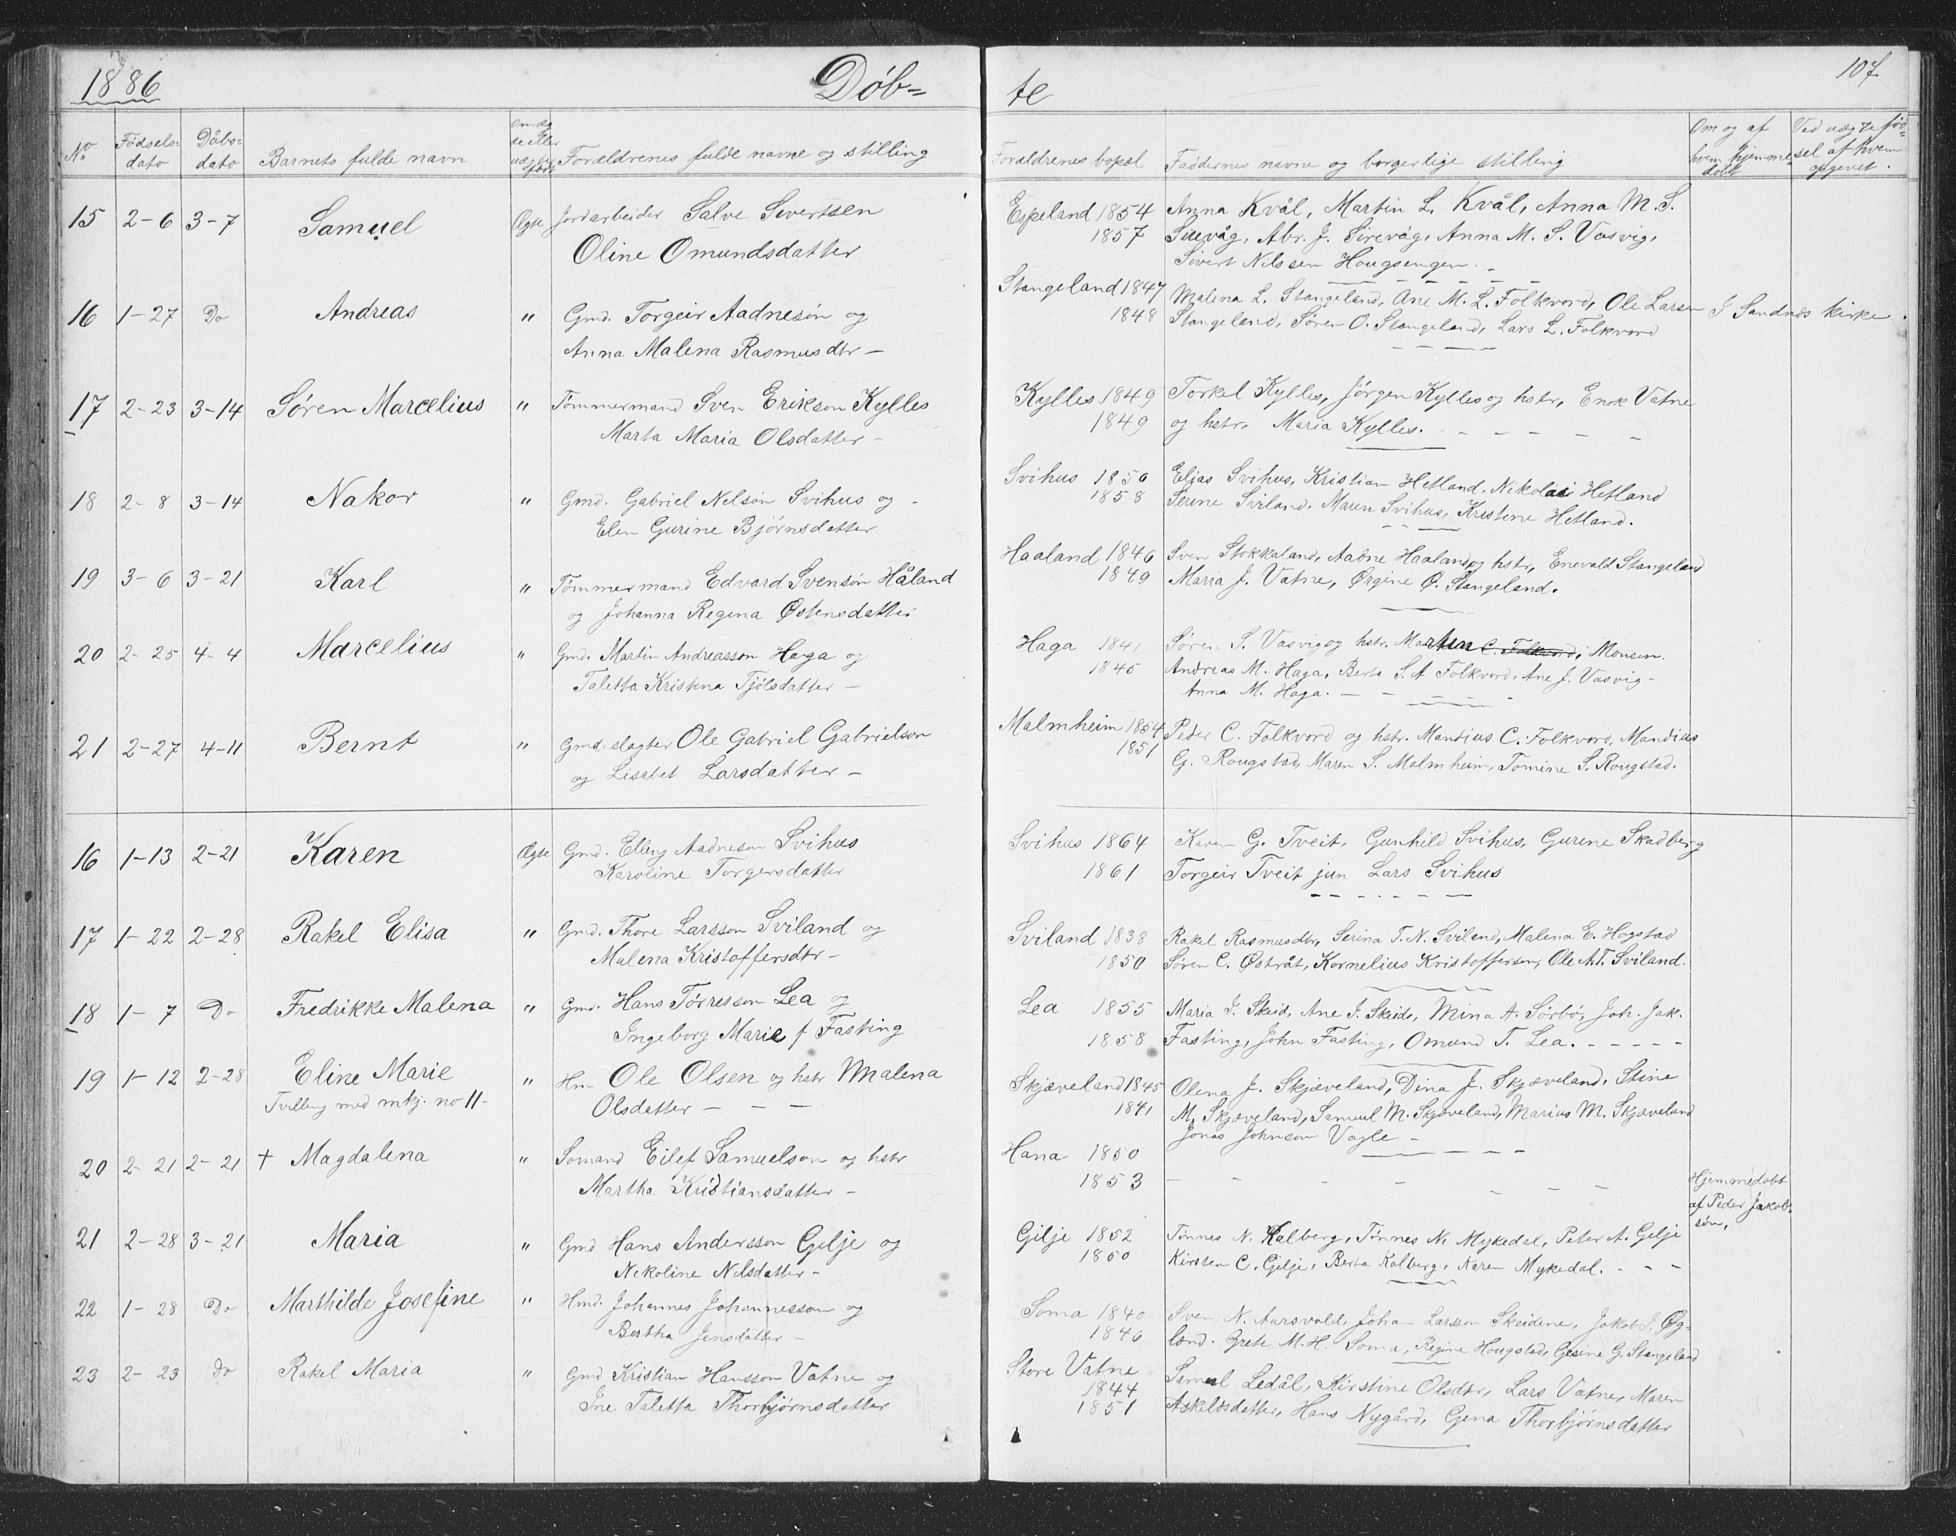 1886 Døb= te 107
No Fødsels- dato Dåbs- dato Barnets fulde navn Om æg te eller uægte født Forældrenes fulde navne og stilling Forældrenes bopæl Faddernes navne og borgerlige stilling Om og af hvem hjemme- døbt Ved uægte fød- sel af hvem opgevet.
15 2-6 3-7 Samuel Ægte Jordarbeider Salve Sivertsen Espeland 1854 Anna Kvål, Martin L. Kvål, Anna M. S.
Oline Omundsdatter 1857 Sirevåg, Abr. J. Sirevåg, Anna M. S. Vasvig,
Sivert Nilssen Hougsengen.
16 1-27 Do Andreas " Gmd. Torgeir Aadnesøn og Stangeland 1847 Malena L. Stangeland, Ane M. L. Folkvord, Ole Larsen I Sandnes kirke.
Anna Malena Rasmusdtr - 1848 Stangeland, Søren O. Stangeland, Lars L. Folkvord
17 2-23 3-14 Søren Marcelius " Tømmermand Sven Erikson Kylles Kylles 1849 Torkel Kylles, Jørgen Kylles og hstr, Enok Vatne
Marta Maria Olsdatter - 1849 og hstr, Maria Kylles.
18 2-8 3-14 Nakor " Gmd. Gabriel Nilson Svihus og - Svihus 1850 Eljas Svihus, Kristian Hetland, Nikolai Hetland
Elen Gurine Bjørnsdatter 1858 Serine Sviland, Maren Svihus, Kristine Hetland.
19 3-6 3-21 Karl " Tømmermand Edvard Svensøn Håland Haaland 1846 Sven Stokkaland, Aadne Haaland og hstr, Enevald Stangeland
og Johanna Regina Østensdatter 1849 Maria J. Vatne, Ørgine Ø. Stangeland.
20 2-25 4-4 Marcelius " Gmd. Martin Andreasson Haga og Haga 1841 Søren S. Vasvig og hstr. Martin C. Folkvord, Monsen.
Taletta Kristina Tjølsdatter - 1845 Andreas M. Haga, Berta S. A Folkvord, Ane J. Vasvig -
Anna M. Haga. -
21 2-27 4-11 Bernt " Gmd. slagter Ole Gabriel Gabrielson Malmheim 1854 Peder C. Folkvord og hstr. Mandius C. Folkvord, Mandius
og Lisabet Larsdatter - 1851 G. Rougstad, Maren S. Malmheim, Tomine S. Rougstad.
16 1-13 2-21 Karen Ægte Gmd. Elling Aadneson Svihus Svihus 1864 Karen G. Tveit, Gunhild Svihus, Gurine Skadberg
Karoline Torgersdatter 1861 Torgeir Tveit jun Lars Svihus
17 1-22 2-28 Rakel Elisa " Gmd. Thore Larsson Sviland og Sviland 1838 Rakel Rasmusdtr, Serina T. N. Sviland, Malena E. Hogstad
Malena Kristoffersdtr - 1850 Søren C. Østråt, Kornelius Kristoffersen, Ole A. T. Sviland.
18 1-7 Do Fredrikke Malena " Gmd. Hans Tørresson Lea og Lea 1855 Maria J. Skeid, Ane J. Skeide, Mina A. Sørbø, Joh. Jak.
Ingeborg Marie f Fasting 1858 Fasting, John Fasting, Omund T. Lea.
19 1-12 2-28 Eline Marie " Hm Ole Olsen og hstr Malena Skjæveland 1845 Olena J. Skjæveland, Dina J. Skjæveland, Stine
Tvilling med mkj. no 11- Olsdatter - 1841 M. Skjæveland, Samuel M. Skjæveland, Marius M. Skjæveland
Jonas Johnson Vagle -
20 2-21 2-21 + Magdalena " Sømand Eilef Samuelson og hstr Hana 1850
Martha Kristiansdatter - 1853 Hjemmedøbt af Peder Jakob- søn.
21 2-28 3-21 Maria " Gmd Hans Andersson Gilje og Gilje 1852 Tønnes N. Kalberg, Tønnes N. Mykedal, Peter A. Gilje
Nikoline Nilsdatter - 1850 Kirsten C. Gilje, Berta Kalberg, Karen Mykedal.
22 1-28 Do Marthilde Josefine " Hmd. Johannes Johannesson og Soma 1840 Sven N. Aarsvold, Johan Larsson Skeidene, Jakob J. Øg-
Bertha Jensdatter - 1846 land. Grete M. H. Soma, Regine Hougstad, Gesine G. Stangeland
23 2-23 Do Rakel Maria " Gmd Kristian Hansson Vatne og Store Vatne 1844 Samuel Ledål, Kirstine Olsdtr, Lars Vatne, Maren
Ine Taletta Thorbjørnsdatter 1851 Askelsdatter, Hans Nygård, Gena Thorbjørnsdatter